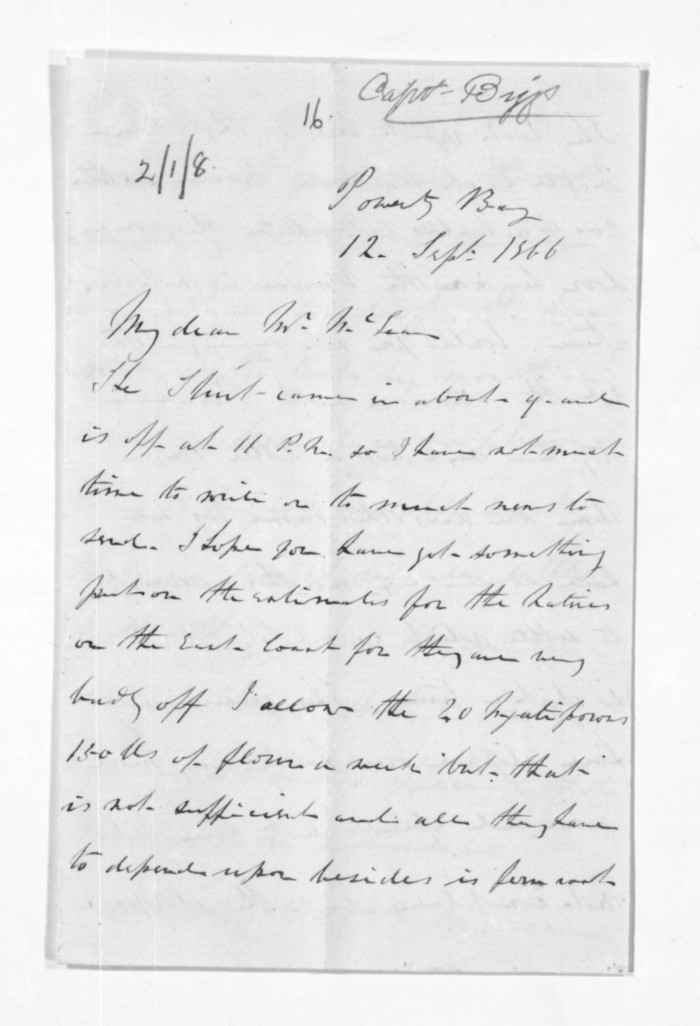 Captn Biggs
16.
2/1/8.
Poverty Bay
12. Sept. 1866
My dear Mr. McLean
The Sturt came in about 9. and
is off at 11 P.M. so I have not much
time to write or to much news to
send. I hope you have got something
put on the estimates for the Natives
on the East Coast for they are very
badly off I allow the 20 Ngatiporous
150 lbs of flour a week but that
is not sufficient and all they have
to depend upon besides is fern root